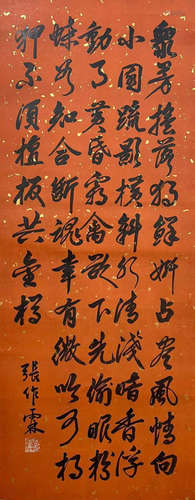 衆芳搖落獨鮮妍占盡風情向
小園疏影橫斜水清淺暗香浮
動月黃昏霜禽欲下先偷眼粉
蝶如知合斷魂幸有微吟可相
狎不須檀板共金樽
張作霖